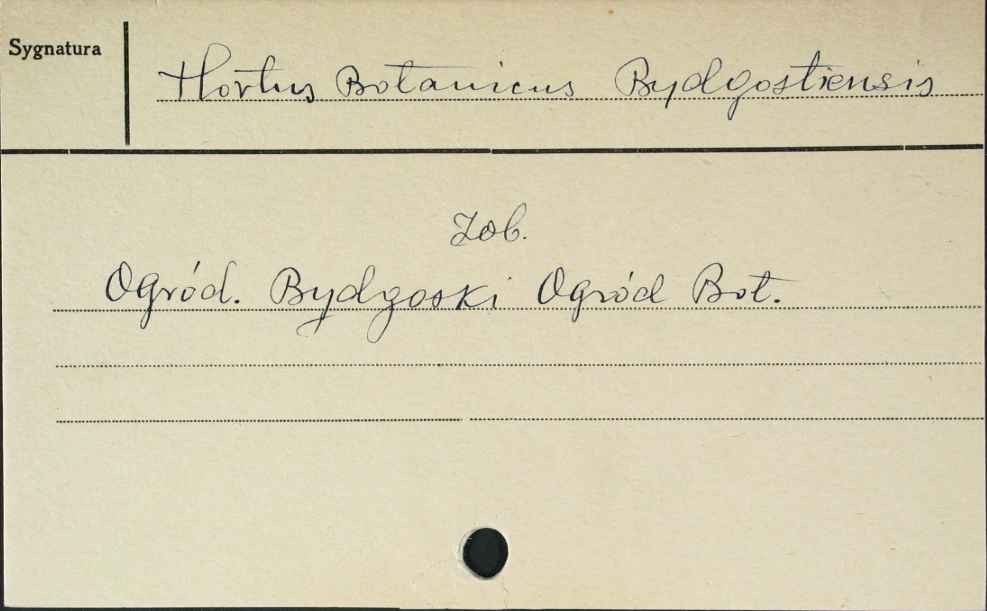 Sygnatura
Hortus Botanicus Bydgostiensis
Zob.
Ogród. Bydgoski Ogród Bot.